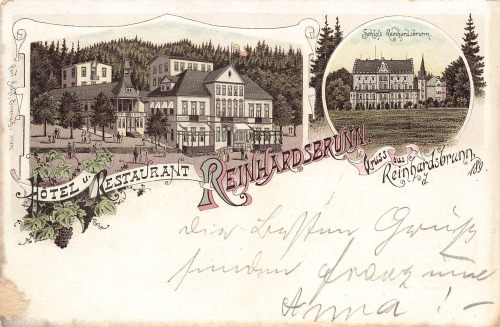 Schloß Reinhardsbrunn.
HOTEL u. RESTAURANT REINHARDSBRUNN
Gruss aus
Reinhardsbrunn,
d. 189
die besten Grüße
senden Franz und
Anna!-